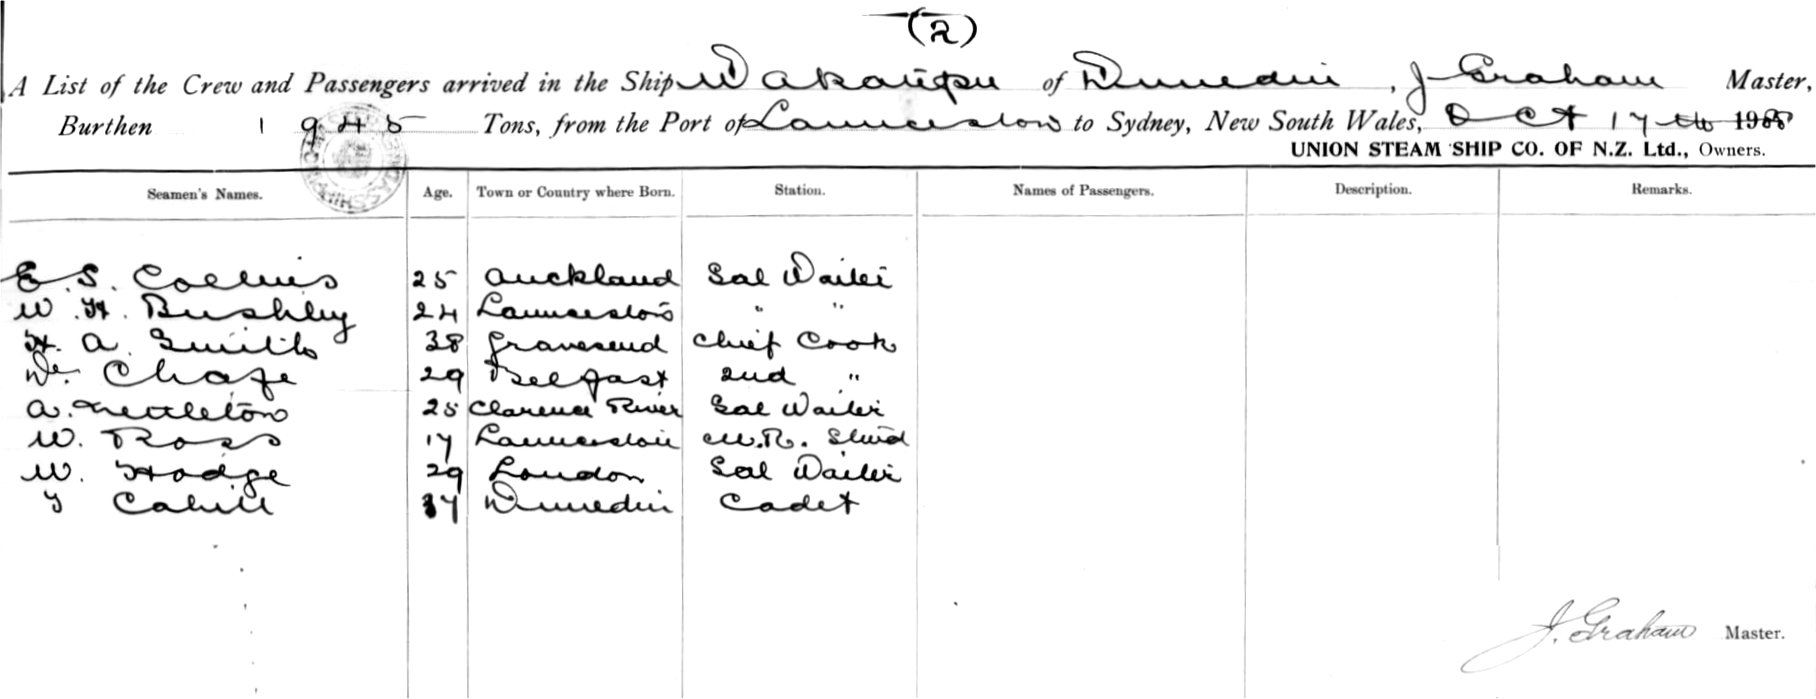 (2)
A List of the Crew and Passengers arrived in the Ship Wakatipu of Dunedin, J Graham Master,
Burthen 1945 Tons, from the Port of Launceston to Sydney, New South Wales, Oct 17th
UNION STEAM SHIP CO. OF N.Z. Ltd., Owners.
Seamen's Names. Age. Town or Country where Born. Station. Names of Passengers. Description. Remarks.
E. S. Collins 25 Auckland Sal Waiter
W. H. Bushby 24 Launceston " "
H. A. Smith 38 Gravesend Chief Cook
Chafe 29 Belfast 2nd "
A. Nettleton 25 Clarence River Sal Waiter
W. Ross 17 Launceston M.R. Stwd
W. Hodge 29 London Sal Waiter
Cahill 17 Dunedin Cadet
J. Graham Master.